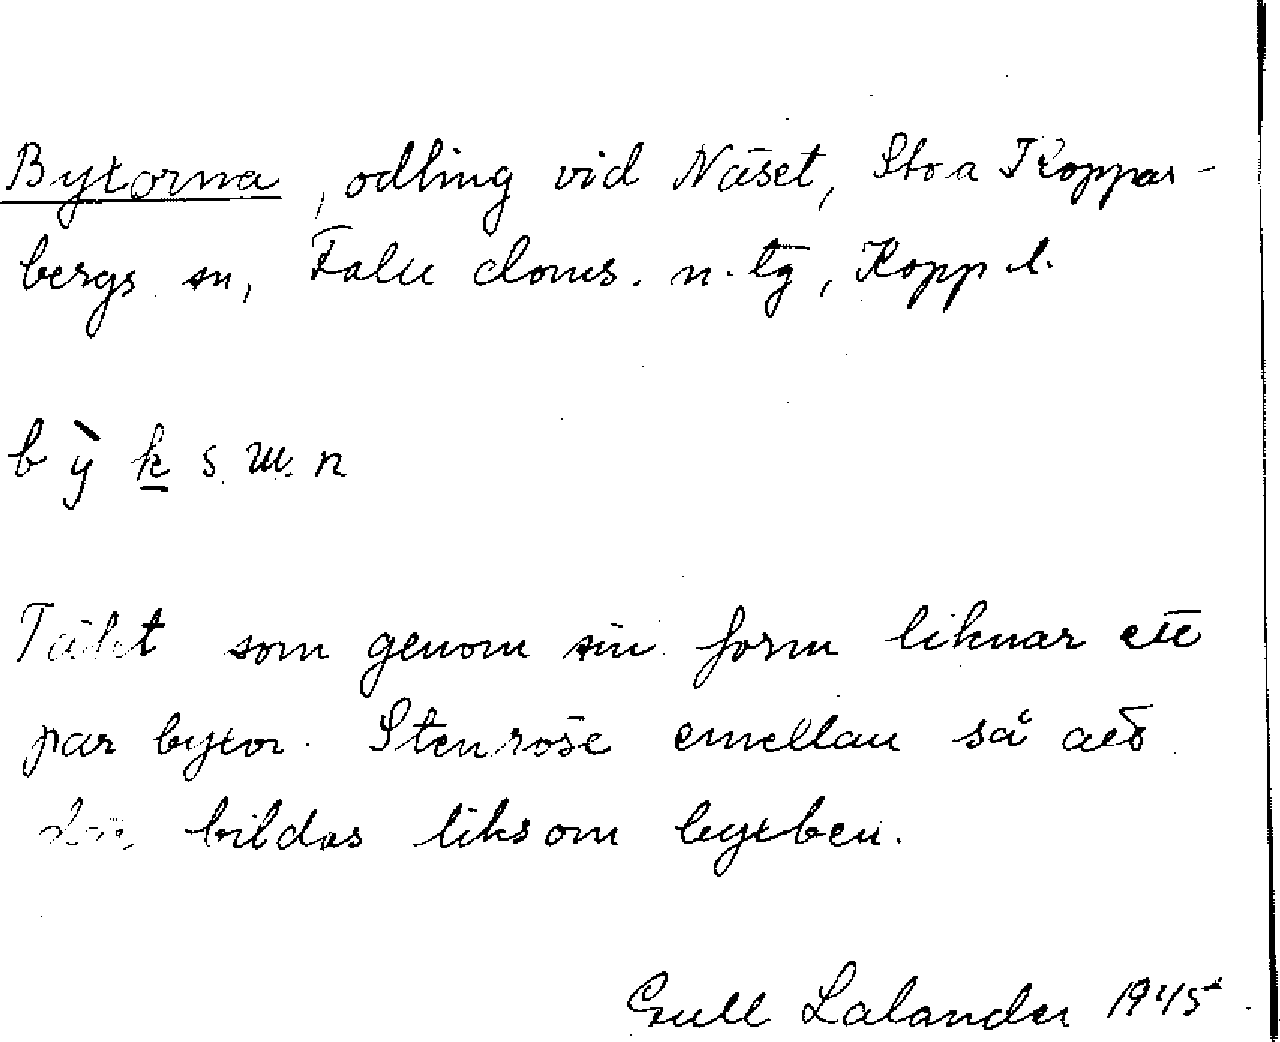 Byxorna, odling vid Näset, Stora Koppar-
bergs sn, Falu doms. n. tg, Kopp. l.
bỳksɯn
Täkt som genom sin form liknar ett
par byxor. Stenröse emellan så att
bildas liksom byxben.
Gull Lalander 1945.